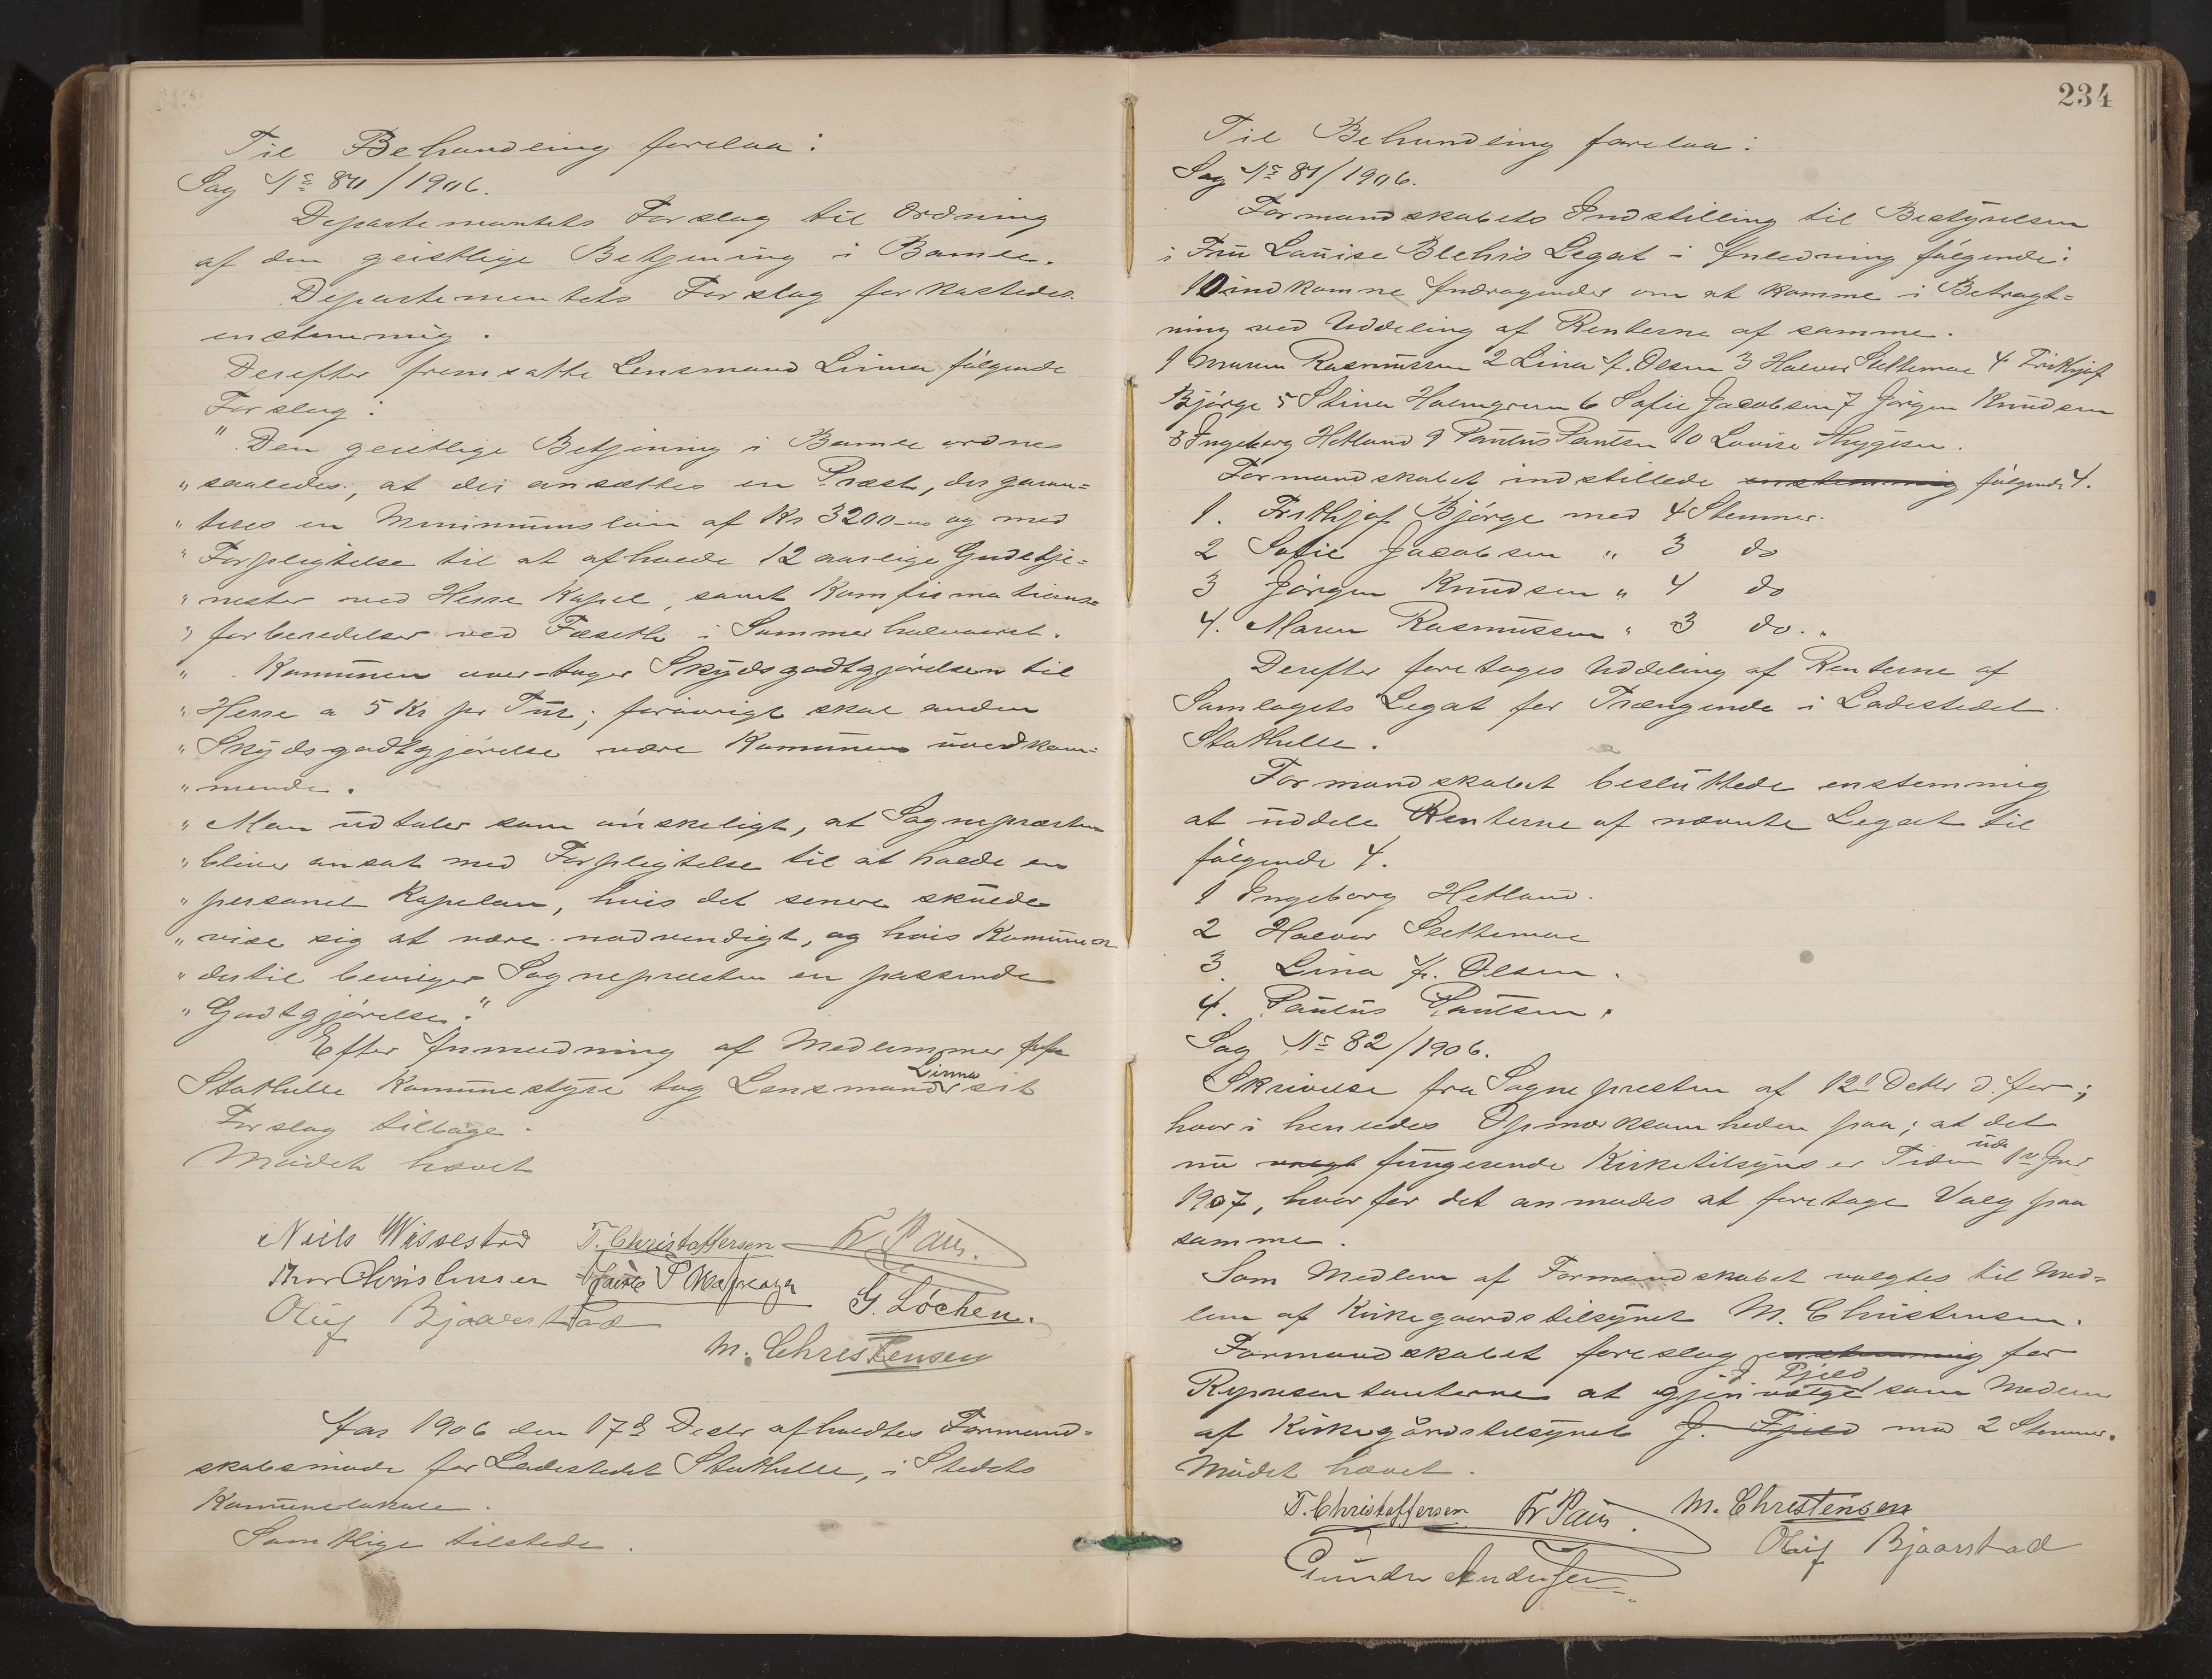 Til Behandling forelaa:
Sag No 80/1906.
Departementets Forslag til Ordning
af den geistlige Betjening i Bamle.
Departementets Forslag forkastedes
enstemmig.
Derefter fremsatte Lensmand Linna følgende
Forslag:
"Den geistlige Betjening i Bamle ordnes
" saaledes, at der ansættes en Præst, der garan=
" teres en Minimumsløn af Kr 3200-00 og med
" Forpligtelse til at afholde 12 aarlige Gudstje=
" nester ved Herre Kapel, samt Konfirmations=
" forberedelser ved Fæseth i Sommerhalvaaret.
" Kommunen over-tager Skydsgodtgjørelsen til
" Herre a 5 Kr pr Tur; forøvrigt skal anden
" Skydsgodtgjørelse være Kommunen uvedkom=
" mende.
" Man udtaler som ønskeligt, at Sognepræsten
" bliver ansat med Forpligtelse til at holde en
" personel Kapelan, hvis det senere skulde
" vise sig at være nødvendigt, og hvis Kommunen
" dertil bevilger Sognepræsten en passende
" Godtgjørelse."
Efter Anmodning af Medlemmer fra
Stathelle Kommunestyre tog Lensmand Linna sit
Forslag tilbage.
Mødet hævet
Niels Wissestad T. Christoffersen Fr Paus.
Christensen G. Løchen.
Oluf Bjaarstad
M. Christensen
Aar 1906 den 17de Decbr afholdtes Formand=
skabsmøde for Ladestedet Stathelle, i Stedets
Kommunelokale.
Samtlige tilstede.
234
Til Behandling forelaa:
Sag No 81/1906.
Formandskabets Indstilling til Bestyrelsen
i Fru Louise Blehrs Legat i Anledning følgende:
10 indkomne Andragender om at komme i Betragt=
ning ved Uddeling af Renterne af samme.
1 Maren Rasmussen 2 Lina F. Olsen 3 Halvor Slettemoe 4 Frithjof
Bjørge 5 Stina Holmgreen 6 Sofie Jacobsen 7 Jørgen Knudsen
8 Ingeborg Hetland 9 Paulus Paulsen 10 Lovise Thygesen.
Formandskabet indstillede enstemmig følgende 4.
1. Frithjof Bjørge med 4 Stemmer.
2 Sofie Jacobsen " 3 do
3 Jørgen Knudsen " 4 do
4. Maren Rasmussen " 3 do. "
Derefter foretoges Uddeling af Renterne af
Samlagets Legat for Trængende i Ladestedet
Stathelle.
Formandskabet besluttede enstemmig
at uddele Renterne af nævnte Legat til
følgende 4.
1 Ingeborg Hetland.
2 Halvor Slettemoe
3. Lina F. Olsen.
4. Paulus Paulsen.
Sag No 82/1906.
Skrivelse fra Sognepresten af 12te Decbr d.
hvori henledes Opmærksomheden paa; at det
nu valgt fungerende Kirketilsyns er Tiden ude 1ste Jnr
1907, hvorfor det anmodes at foretage Valg paa
samme.
Som Medlem af Formandskabet valgtes til Med=
lem af Kirkegaardstilsynet M. Christensen.
Formandskabet foreslog enstemmig for
Repræsentanterne at gjenvælge J. Fjeld som Medlem
af Kirkegårdstilsynet J. Fjeld med 2 Stemmer.
Mødet hævet.
T. Christoffersen Fr Paus. M. Christensen
Oluf Bjaarstad
Gunder Andersen